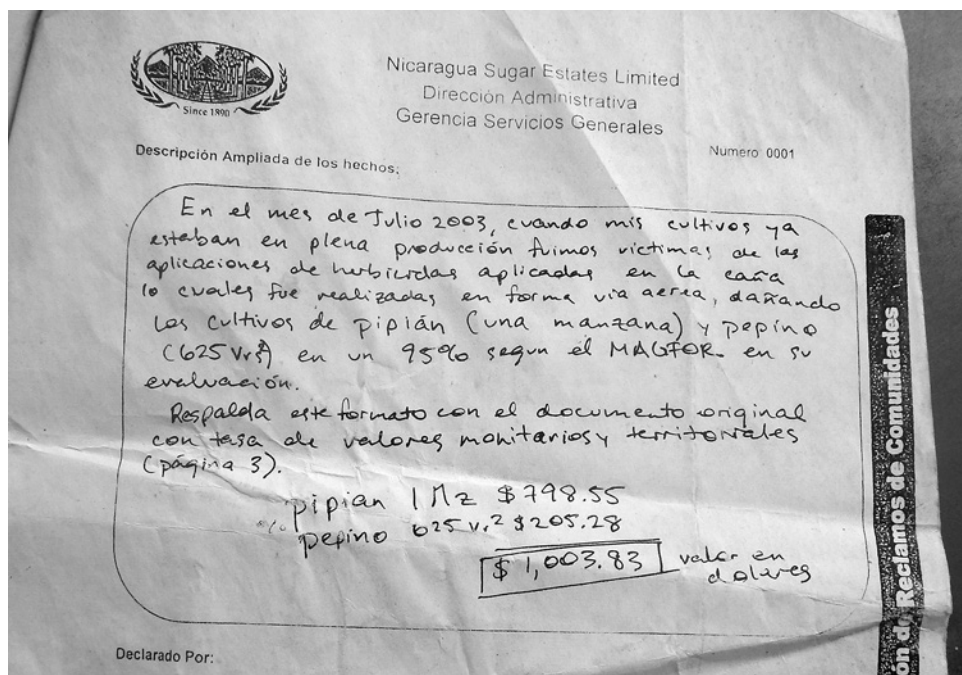 Since 1890
Nicaragua Sugar Estates Limited
Dirección Administrativa
Gerencia Servicios Generales
Numero 0001
Descripción Ampliada de los hechos:
En el mes de Julio 2003, cuando mis cultivos ya
estaban en plena producción fuimos victimas de las
aplicaciones de herbicidas aplicadas en la caña
lo cuales fue realizadas en forma via aerea, dañando
los cultivos de pipián (una manzana) y pepino
(625 Vrs²) en un 95% segun el MAGFOR en su
evaluación.
Respalda este formato con el documento original
con tasa de valores monitarios y territoriales
(página 3).
pipian 1 Mz $798.55
pepino 625 vr² $205.28
$1,003.83 valor en
dolares
Declarado Por:
ón de Reclamos de Comunidades